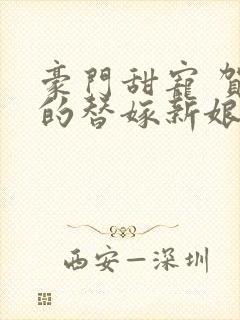 豪門甜寵 賀
的替嫁新娘
西安—深圳